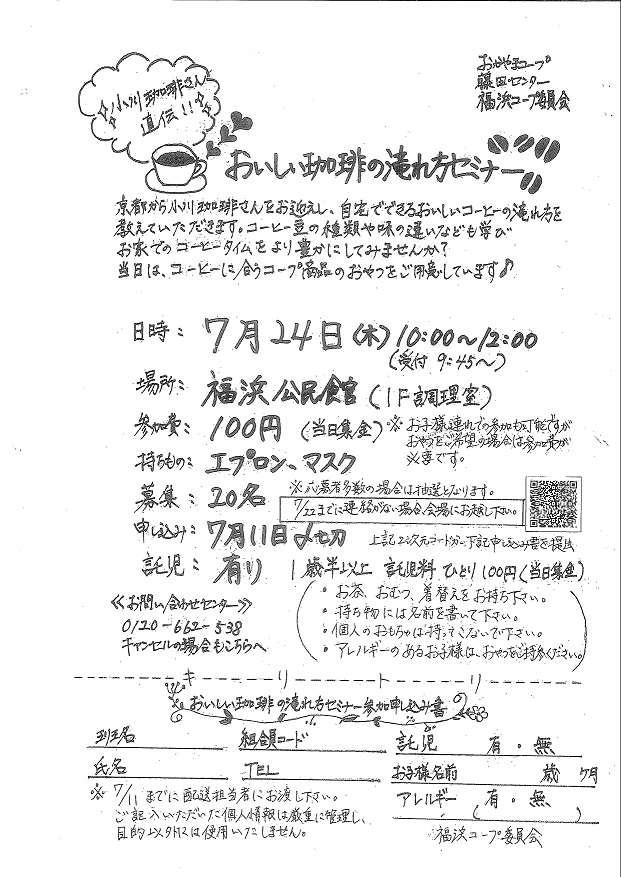 おかやまコープ
藤田センター
福浜コープ委員会
小川珈琲さん
直伝!!
おいしい珈琲の淹れ方セミナー
京都から小川珈琲さんをお迎えし、自宅でできるおいしいコーヒーの淹れ方を
教えていただきます。コーヒー豆の種類や味の違いなども学び
お家でのコーヒータイムをより豊かにしてみませんか?
当日は、コーヒーに合うコープ商品のおやつをご用意しています♪
日時: 7月24日(木) 10:00〜12:00
(受付 9:45〜)
場所: 福浜公民館(1F調理室)
参加費: 100円(当日集金) ※お子様連れでの参加も可能ですが
おやつをご希望の場合は参加費が
必要です。
持ちもの: エプロン、マスク
募集: 20名 ※応募者多数の場合は抽選となります。
7/22までに連絡がない場合、会場にお越し下さい。
申し込み: 7月11日〆切 上記2次元コードか、下記申し込み書を提出
託児: 有り 1歳半以上 託児料 ひとり100円(当日集金)
・お茶、おむつ、着替えをお持ち下さい。
・持ち物には名前を書いて下さい。
・個人のおもちゃは持ってこないで下さい。
・アレルギーのあるお子様は、おやつをご持参ください。
≪お問い合わせセンター≫
0120-662-538
キャンセルの場合もこちらへ
キリトリ
おいしい珈琲の淹れ方セミナー参加申し込み書
班名 組合員コード 託児 有・無
氏名 TEL お子様名前 歳 ヶ月
アレルギー(有・無
( )
※7/11までに配送担当者にお渡し下さい。
ご記入いただいた個人情報は厳重に管理し、
目的以外には使用いたしません。
福浜コープ委員会